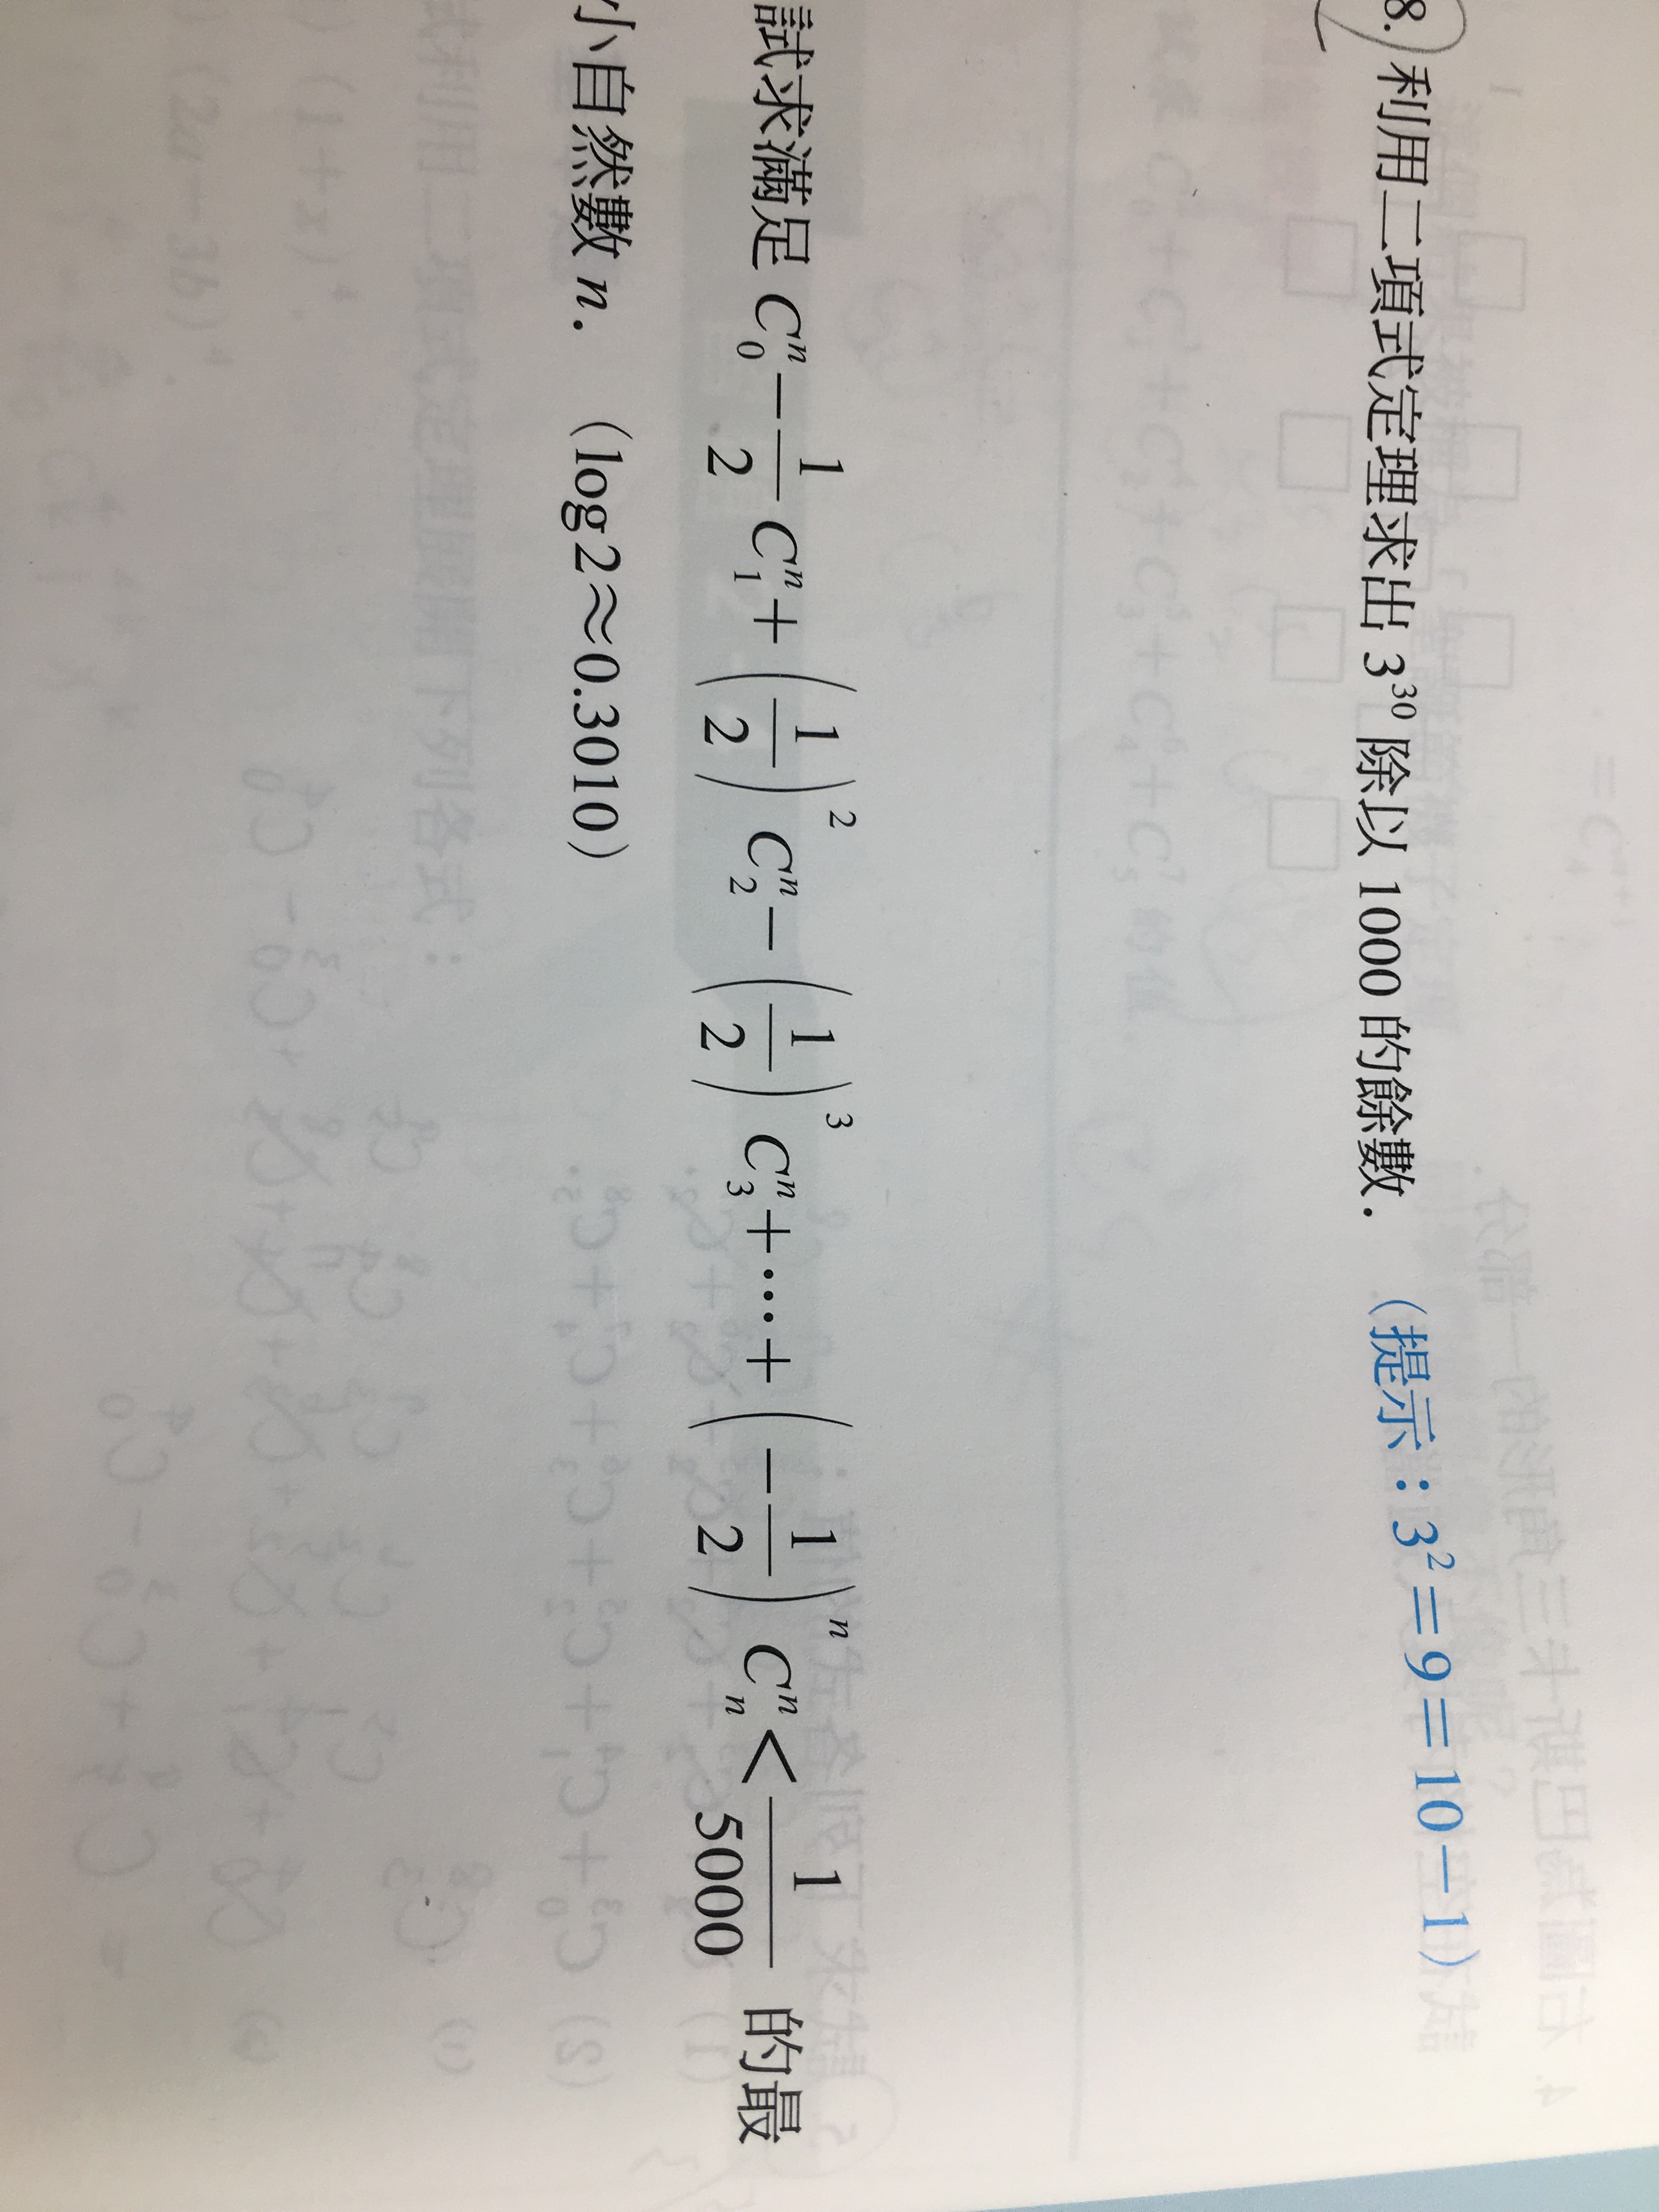 8. 利用二項式定理求出 3³⁰ 除以 1000 的餘數. (提示:3²=9=10-1)
試求滿足 C₀ⁿ-1/2 C₁ⁿ+(1/2)² C₂ⁿ-(1/2)³ C₃ⁿ+⋯+(-1/2)ⁿ Cₙⁿ<1/5000 的最
小自然數 n. (log2≈0.3010)